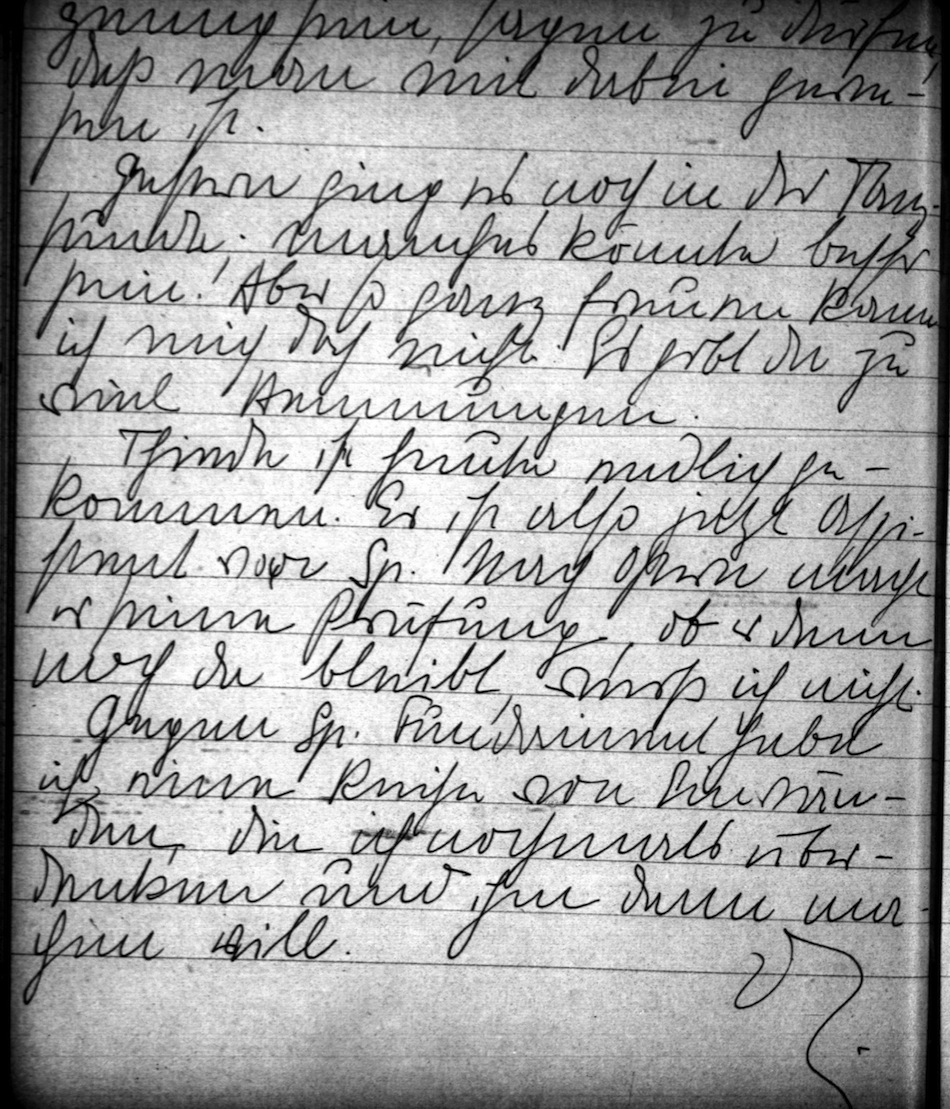 genug sein, sagen zu dürfen,
daß man mit dabei gewe-
sen ist.
Gestern ging es noch in der Tanz-
stunde; manches könnte besser
sein! Aber so ganz freuen kann
ich mich doch nicht. Es gibt da zu
viel Hemmungen.
Thiede ist heute endlich ge-
kommen. Er ist also jetzt Assi-
stent von Sp. Nach Ostern macht
er seine Prüfung, ob er dann
noch da bleibt, weiß ich nicht.
Gegen Sp. Fundament habe
ich eine Reihe von Einwän-
den, die ich nochmals über-
denken und ihm dann ma-
chen will.